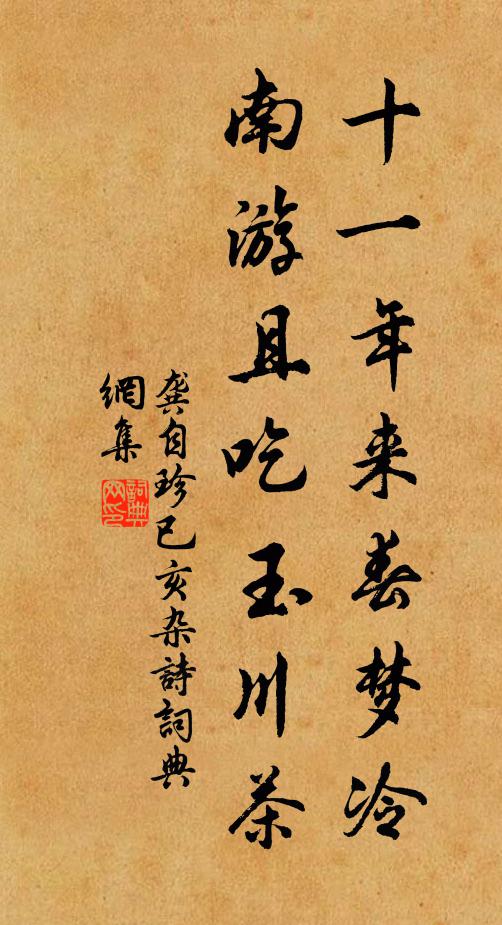 十一年来春梦冷
南游且吃玉川茶
龚自珍已亥杂詩詞典
網集
詞典
网印